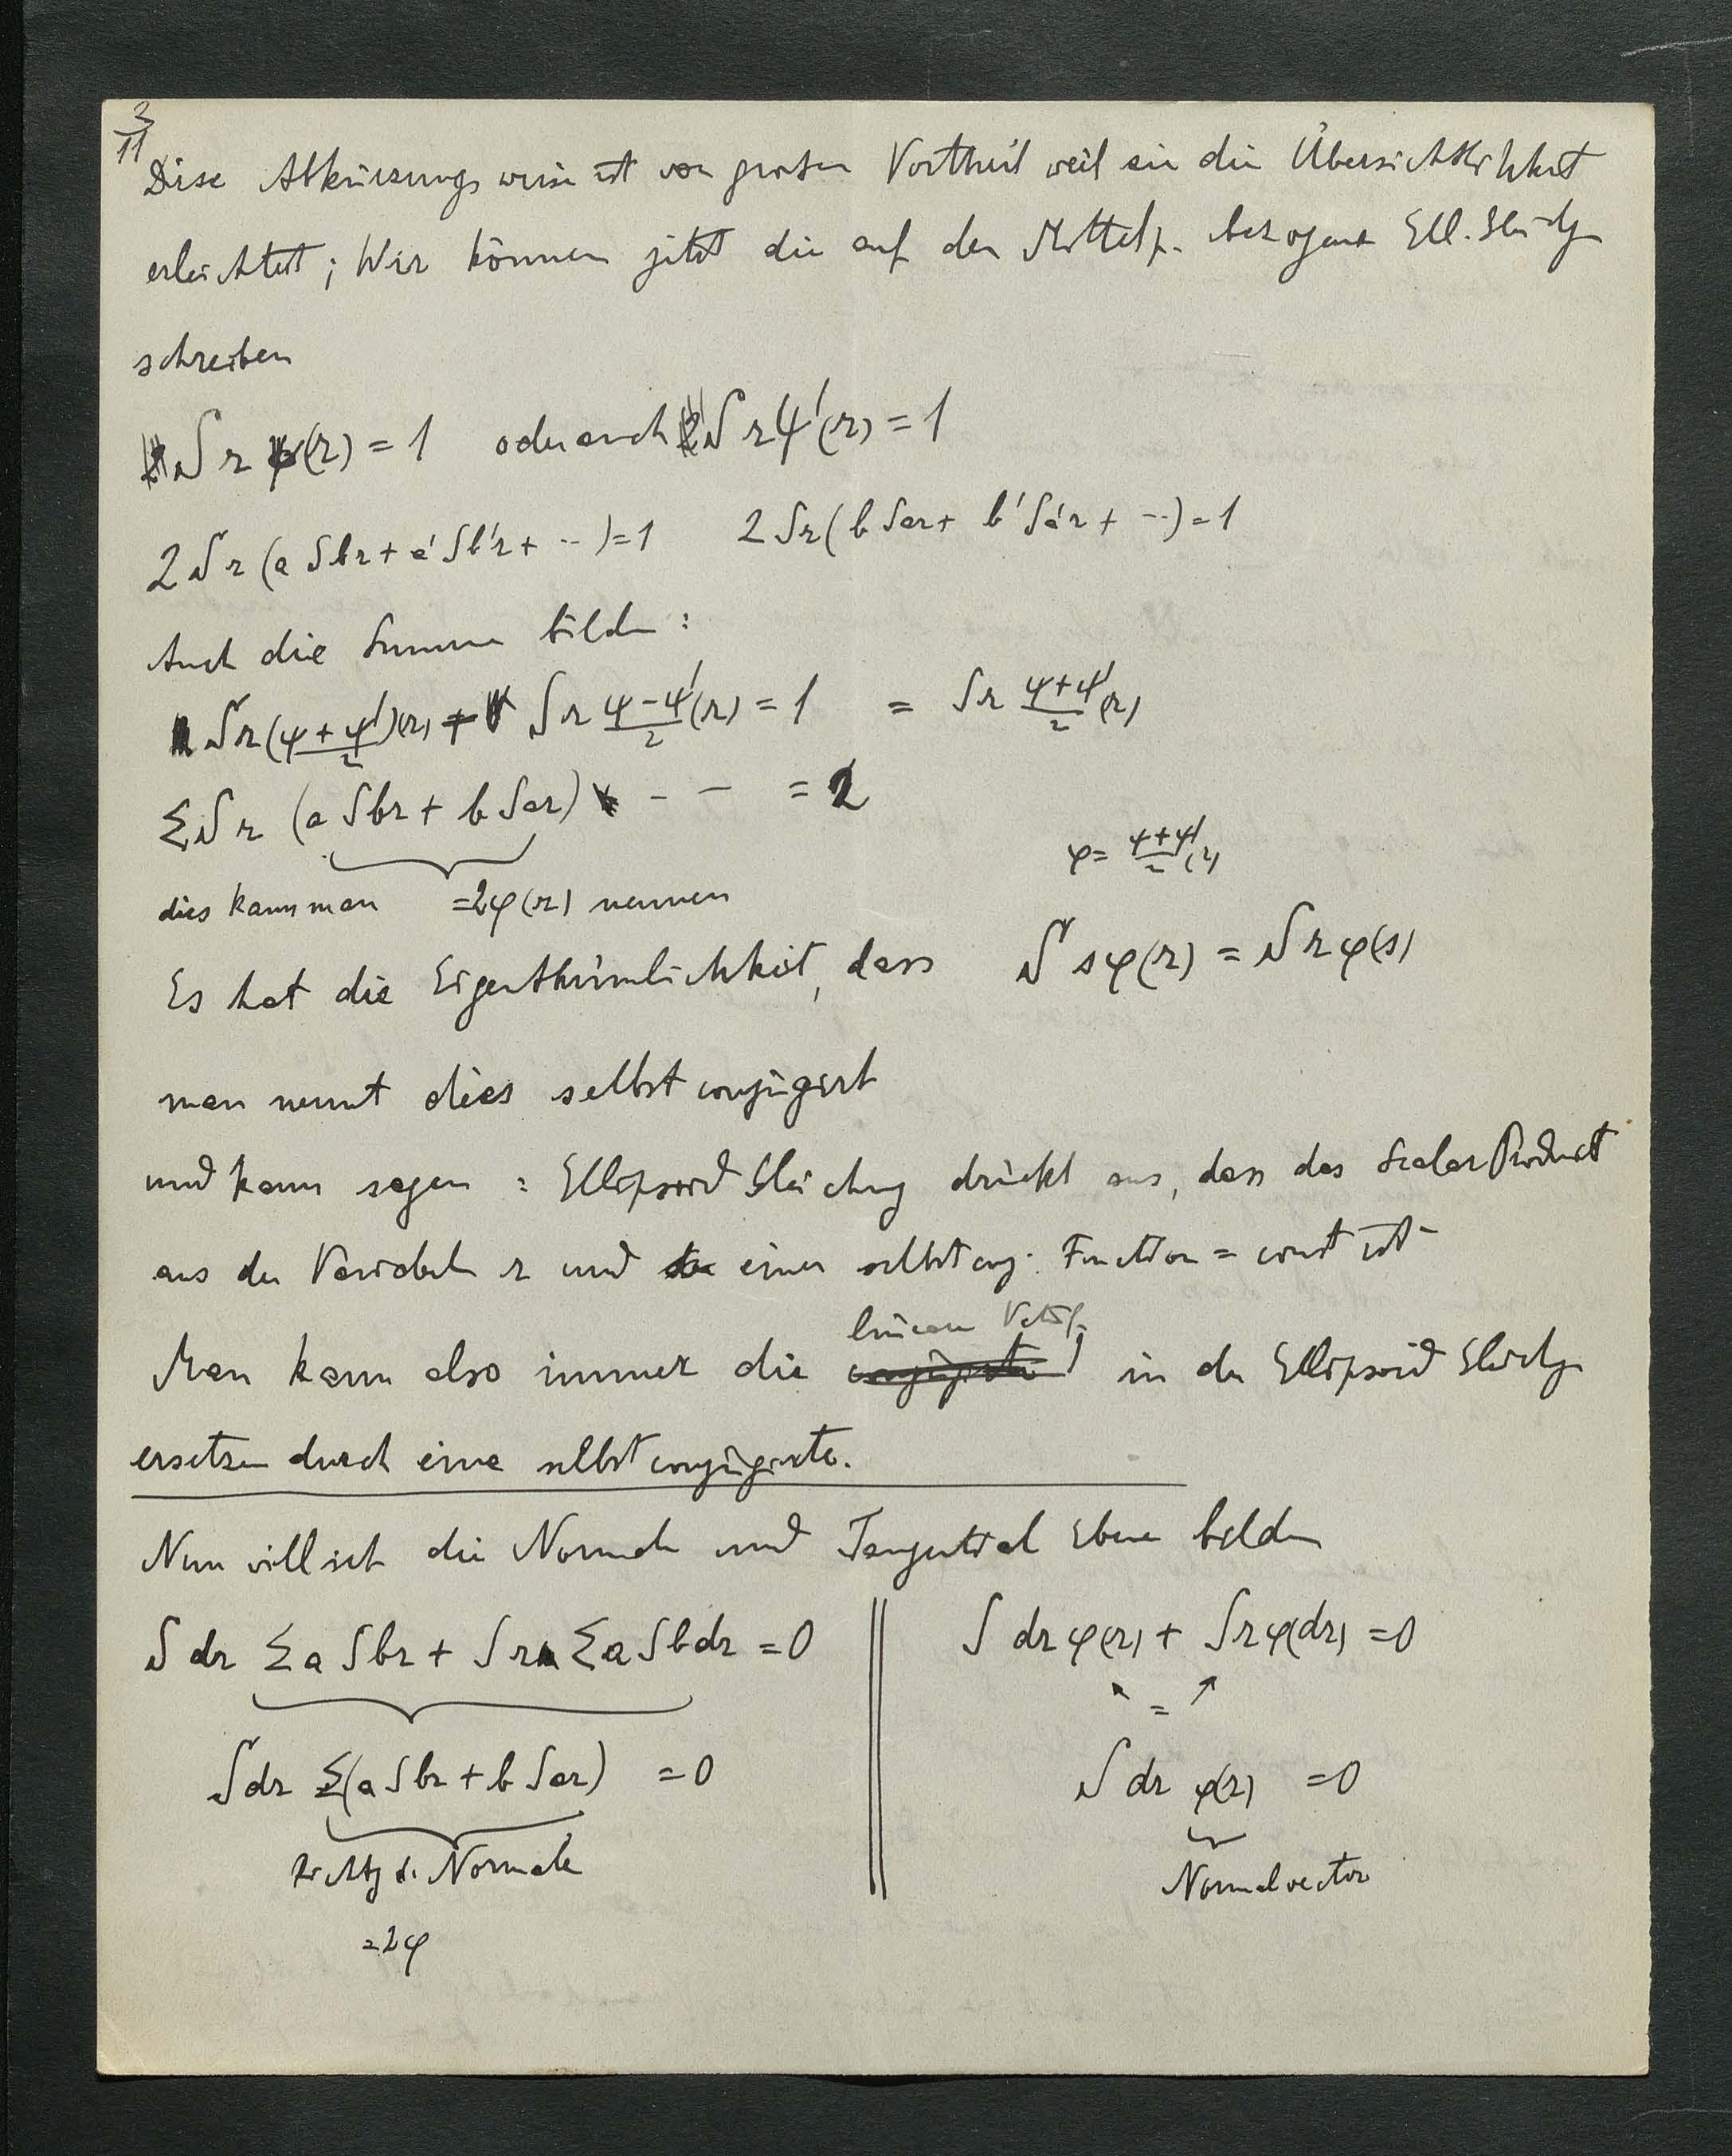 3/11
Diese Abkürzungsweise ist von grossen Vortheil weil sie die Übersichtlichkeit
erleichtet; Wir können jetzt die auf den Mittelp. bezogene Ell. Gleichg
schreiben
S r ψ(r) = 1 oder auch S r ψ'(r) = 1
2 S r (a Sbr + a' Sb'r + ··) = 1 2 Sr (b Sar + b' Sa'r + ···) = 1
Auch die Summe bilden:
S r (ψ + ψ')/2 (r) + S r (ψ - ψ')/2 (r) = 1 = S r (ψ + ψ')/2 (r)
Σ S r (a Sbr + b Sar) - - = 2
φ = (ψ + ψ')/2 (r)
dies kann man = 2φ(r) nennen
Es hat die Eigenthümlichkeit, dass S s φ(r) = S r φ(s)
man nennt dies selbstconjugirt
und kann sagen: Ellipsoid Gleichung drückt aus, dass das Scalar Product
aus der Variabeln r und einer selbstconj. Function = const ist
lineare Vekt f.
Man kann also immer die in der Ellipsoid Gleichg
ersetzen durch eine selbstconjugirte.
Nun will ich die Normale und Tangential Ebene bilden
S dr Σ a Sbr + S r Σ a Sb dr = 0
S dr φ(r) + S r φ(dr) = 0
=
S dr Σ(a Sbr + b Sar) = 0
S dr φ(r) = 0
Richtg d. Normale
Normalvector
= 2φ